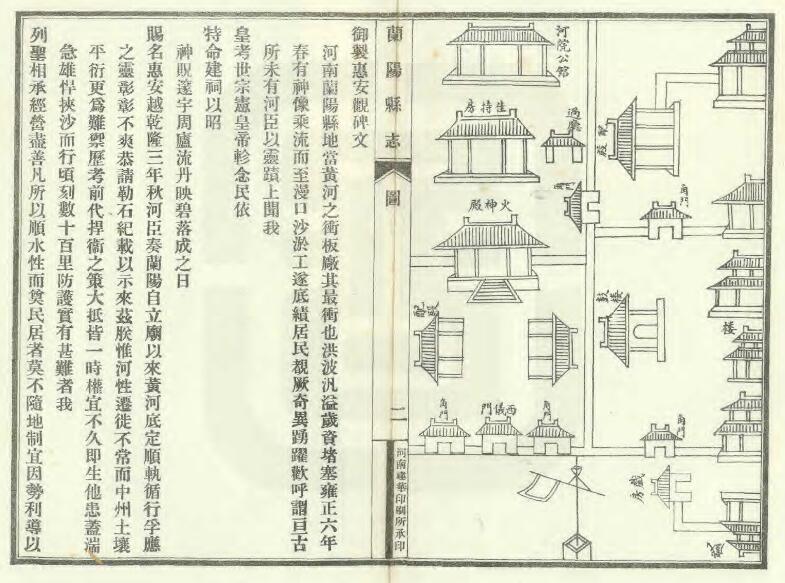 河院公館
住持房
過廳
配殿
角門
角門
火神殿
鼓樓
配殿
樓
角門
西儀門
角門
角門
戲房
蘭陽縣志
圖
二
河南建華印刷所承印
御製惠安觀碑文
河南蘭陽縣地當黃河之衝板廠其最衝也洪波汎溢歲資堵塞雍正六年
春有神像乘流而至漫口沙淤工遂底績居民覩厥奇異踴躍歡呼謂亘古
所未有河臣以靈蹟上聞我
皇考世宗憲皇帝軫念民依
特命建祠以昭
神貺邃宇周廬流丹映碧落成之日
賜名惠安越乾隆三年秋河臣奏蘭陽自立廟以來黃河底定順軌循行孚應
之靈彰彰不爽恭請勒石紀載以示來茲朕惟河性遷徙不常而中州土壤
平衍更爲難禦歷考前代捍衞之策大抵皆一時權宜不久即生他患蓋湍
急雄悍挾沙而行頃刻數十百里防護實有甚難者我
列聖相承經營盡善凡所以順水性而奠民居者莫不隨地制宜因勢利導以